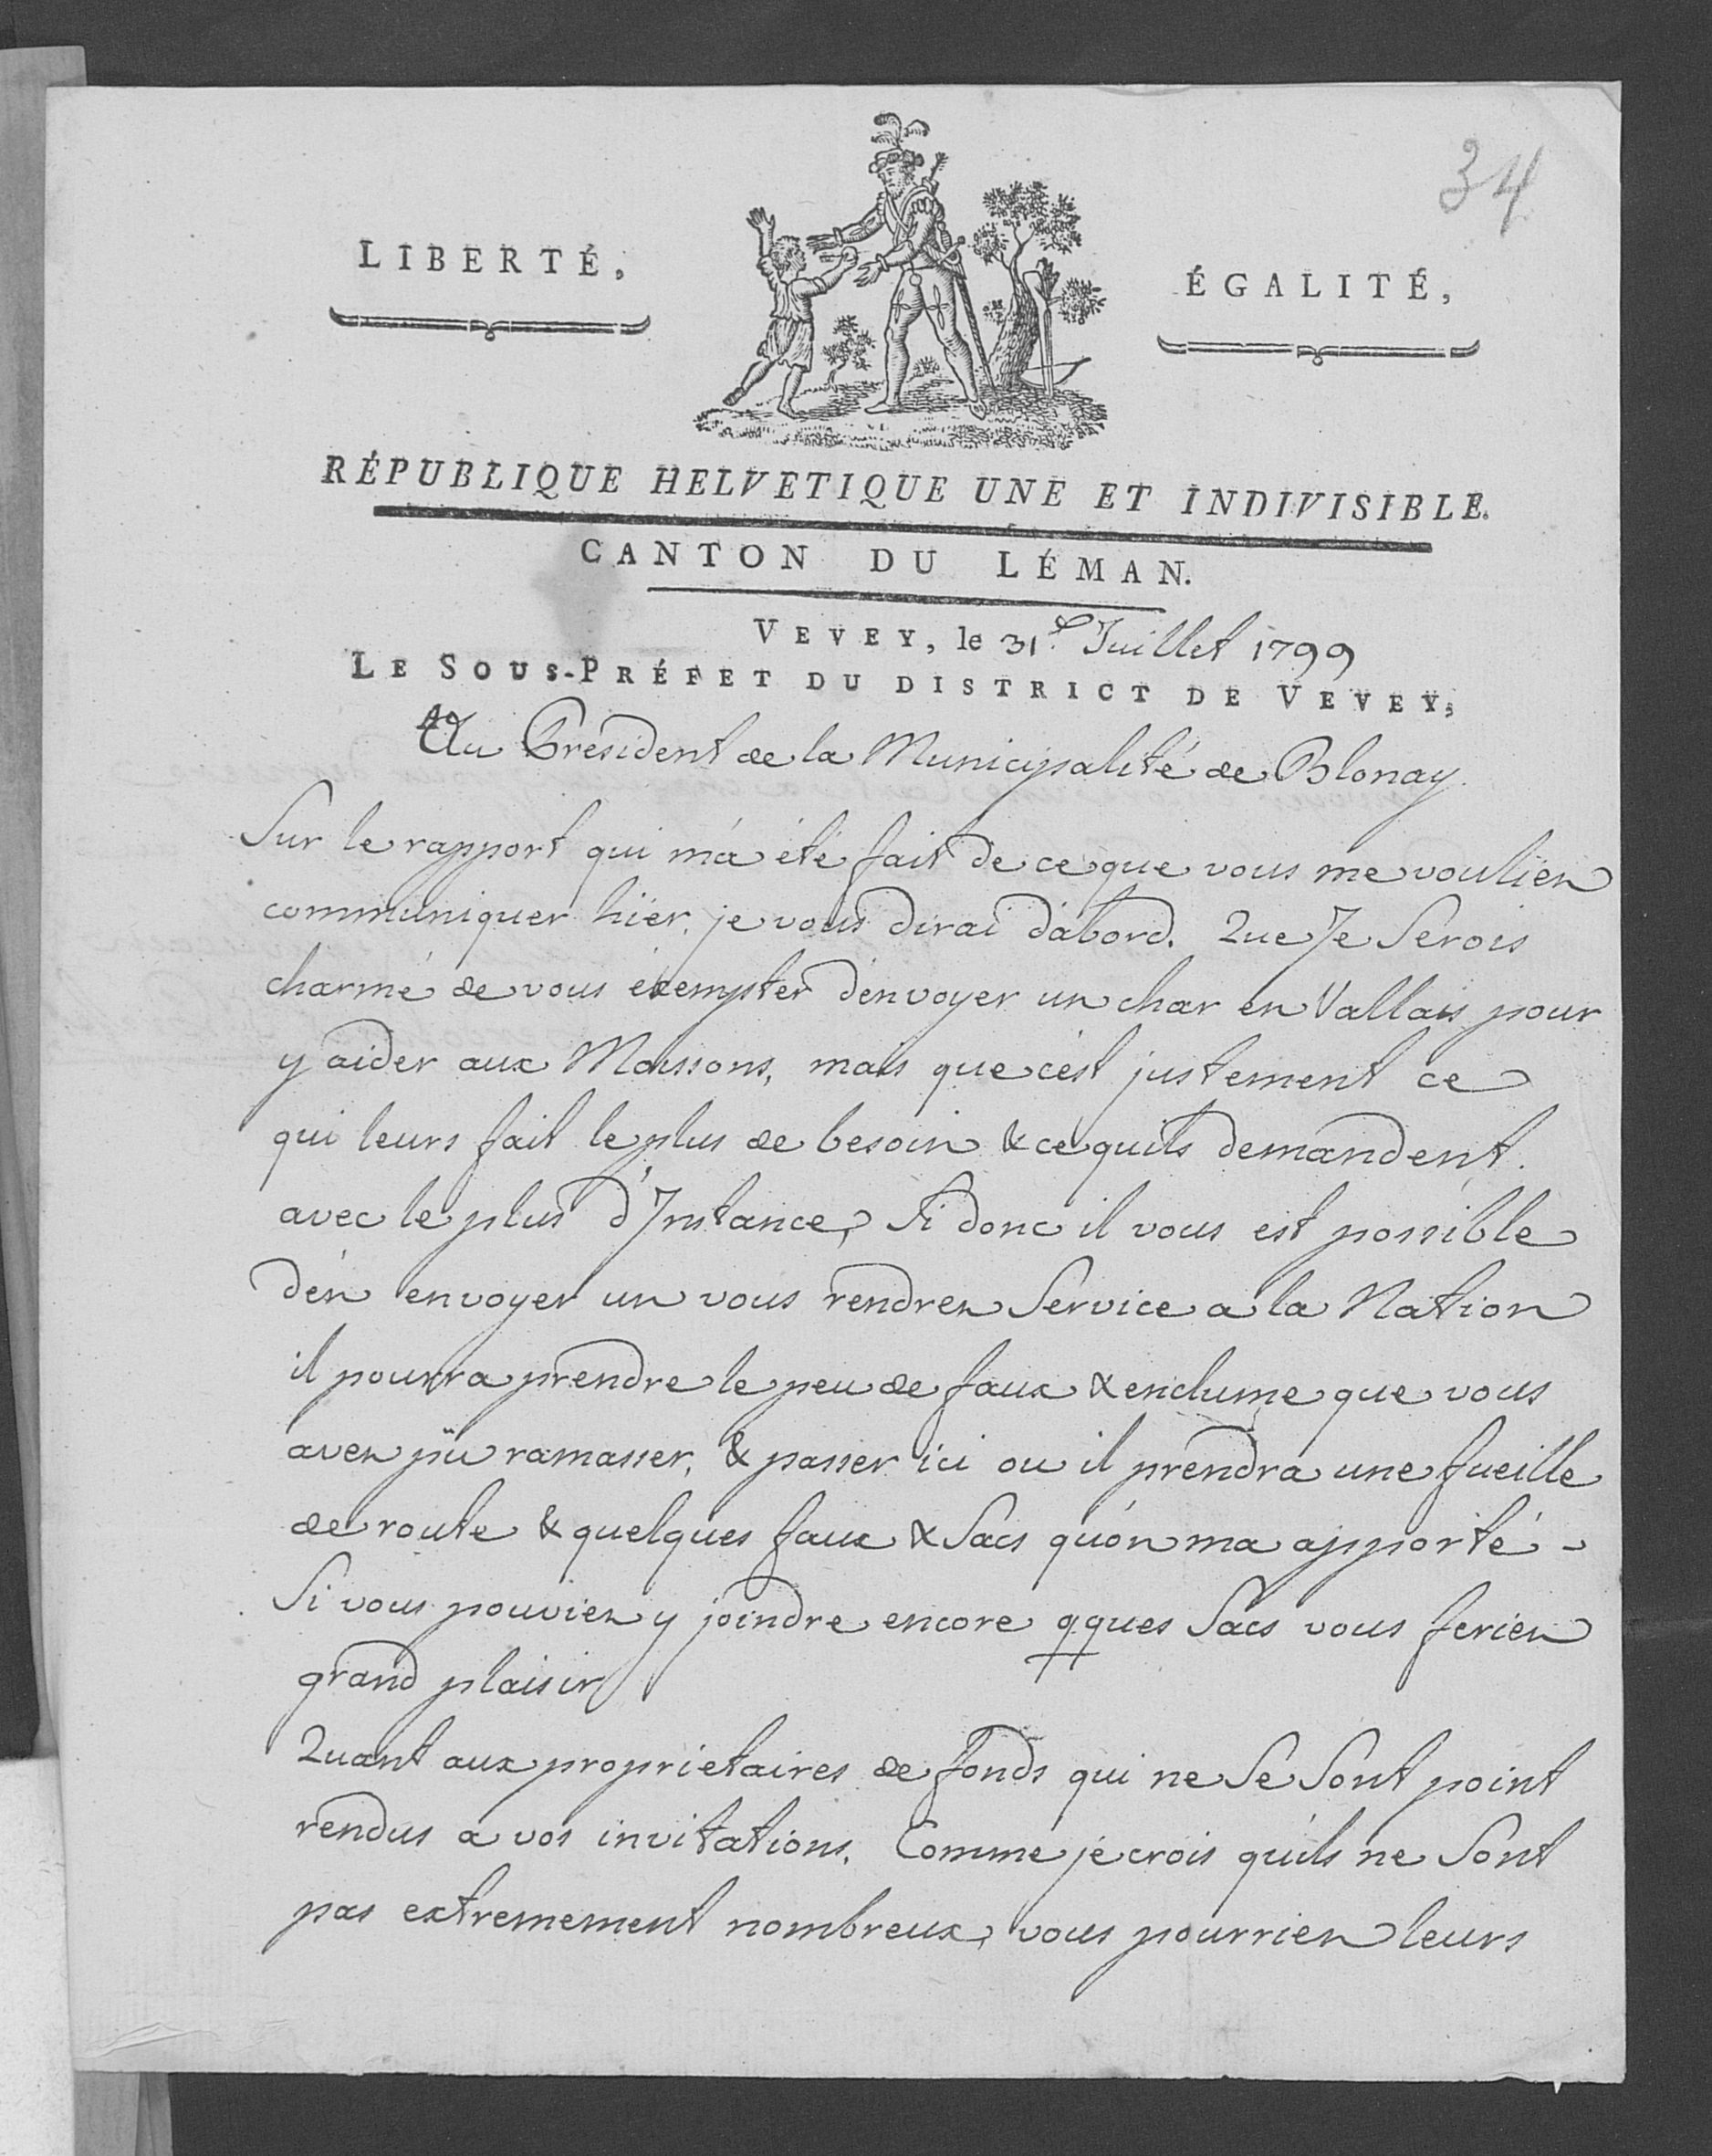 34
LIBERTÉ,
ÉGALITÉ,
RÉPUBLIQUE HELVETIQUE UNE ET INDIVISIBLE.
CANTON DU LÉMAN.
VEVEY, le 31.e Juillet 1799
LE SOUS-PRÉFET DU DISTRICT DE VEVEY,
Au Président de la Municipalité de Blonay.
Sur le rapport qui m'a été fait de ce que vous me vouliez
communiquer hier. je vous dirai d'abord. Que Je Serois
charmé de vous éxempter d'envoyer un char en Vallais pour
y aider aux Moissons, mais que c'est justement ce
qui leurs fait le plus de besoin & ce quils demandent.
avec le plus d'Instance, Si donc il vous est possible
d'en envoyer un vous rendrez Service a la Nation
il pourra prendre le peu de faux & enclume que vous
avez pü ramasser, & passer ici ou il prendra une fueille
de route & quelques faux & Sacs qu'on ma apporté -
Si vous pouviez y joindre encore qques Sacs vous feriez
grand plaisir
Quant aux proprietaires de fonds qui ne Se Sont point
rendus a vos invitations. Comme je crois qu'ils ne Sont
pas extremement nombreux, vous pourriez leurs